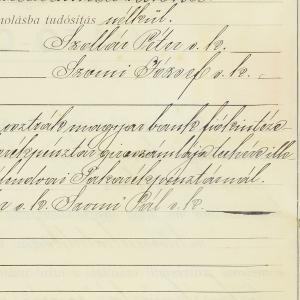 molásba tudósítás nélkül.
Szollár Péter s. k.
Szomi József s. k.
osztrák magyar bank fiókintéze
takarékpénztár giroszámlája terhére ill.
lendvai Takarékpénztárnál.
s. k. Szomi Pál s. k.